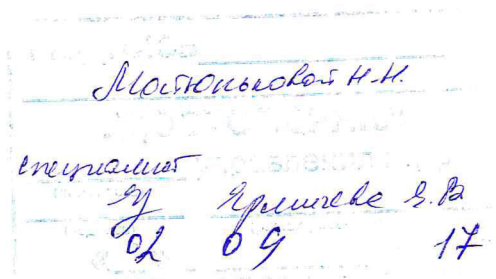 Матюньковой Н.Н.
специалист
Ермичева Е.В
02 09 17